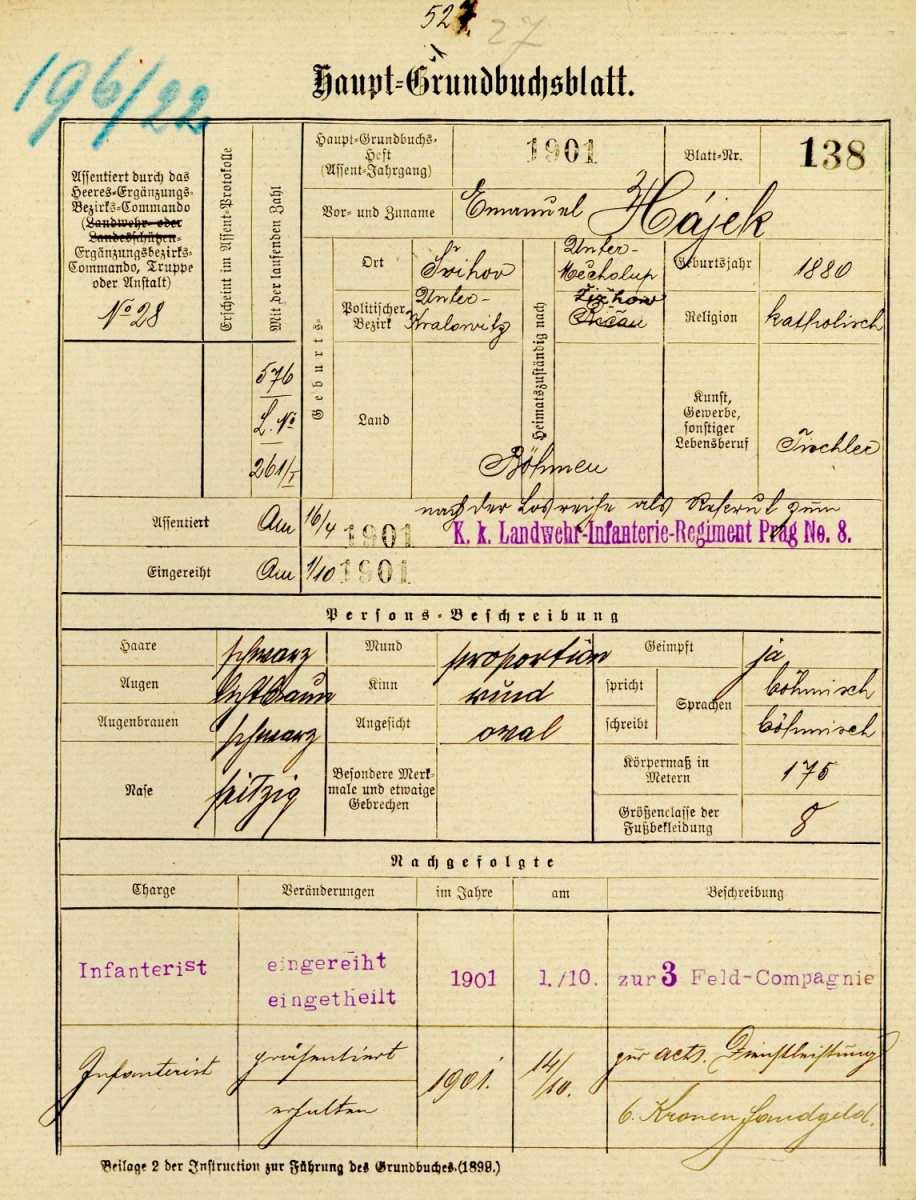 52 27
196/22
Haupt-Grundbuchsblatt.
Assentiert durch das
Heeres-Ergänzungs-
Bezirks-Commando
(Landwehr- oder
Landesschützen-
Ergänzungsbezirks-
Commando, Truppe
oder Anstalt)
No 28
Erscheint im Assent-Protokolle
Mit der laufenden Zahl
576
L. No
261/I
Haupt-Grundbuchs-
Heft
(Assent-Jahrgang)
1901
Blatt-Nr.
138
Vor- und Zuname
Emanuel Hájek
Geburts-
Ort
Politischer
Bezirk
Unter-
Kralowitz
Land
Heimatszuständig nach
Unter-
Mecholup
Böhmen
Geburtsjahr
1880
Religion
katholisch
Kunst,
Gewerbe,
sonstiger
Lebensberuf
Tischler
Assentiert Am 16/4 1901
nach der Losreihe als Rekrut zum
K. k. Landwehr-Infanterie-Regiment Prag No. 8.
Eingereiht Am 1/10 1901
Persons-Beschreibung
Haare schwarz
Augen lichtbraun
Augenbrauen schwarz
Nase spitzig
Mund proportion
Kinn rund
Angesicht oval
Besondere Merk-
male und etwaige
Gebrechen
Geimpft ja
spricht
schreibt
Sprachen
böhmisch
böhmisch
Körpermaß in
Metern
175
Größenclasse der
Fußbekleidung
8
Nachgefolgte
Charge Veränderungen im Jahre am Beschreibung
Infanterist eingereiht
eingetheilt 1901 1./10. zur 3 Feld-Compagnie
Infanterist präsentiert
erhalten 1901. 14/10. zur act. Dienstleistung
6. Kronen Handgeld.
Beilage 2 der Instruction zur Führung des Grundbuches.(1899.)